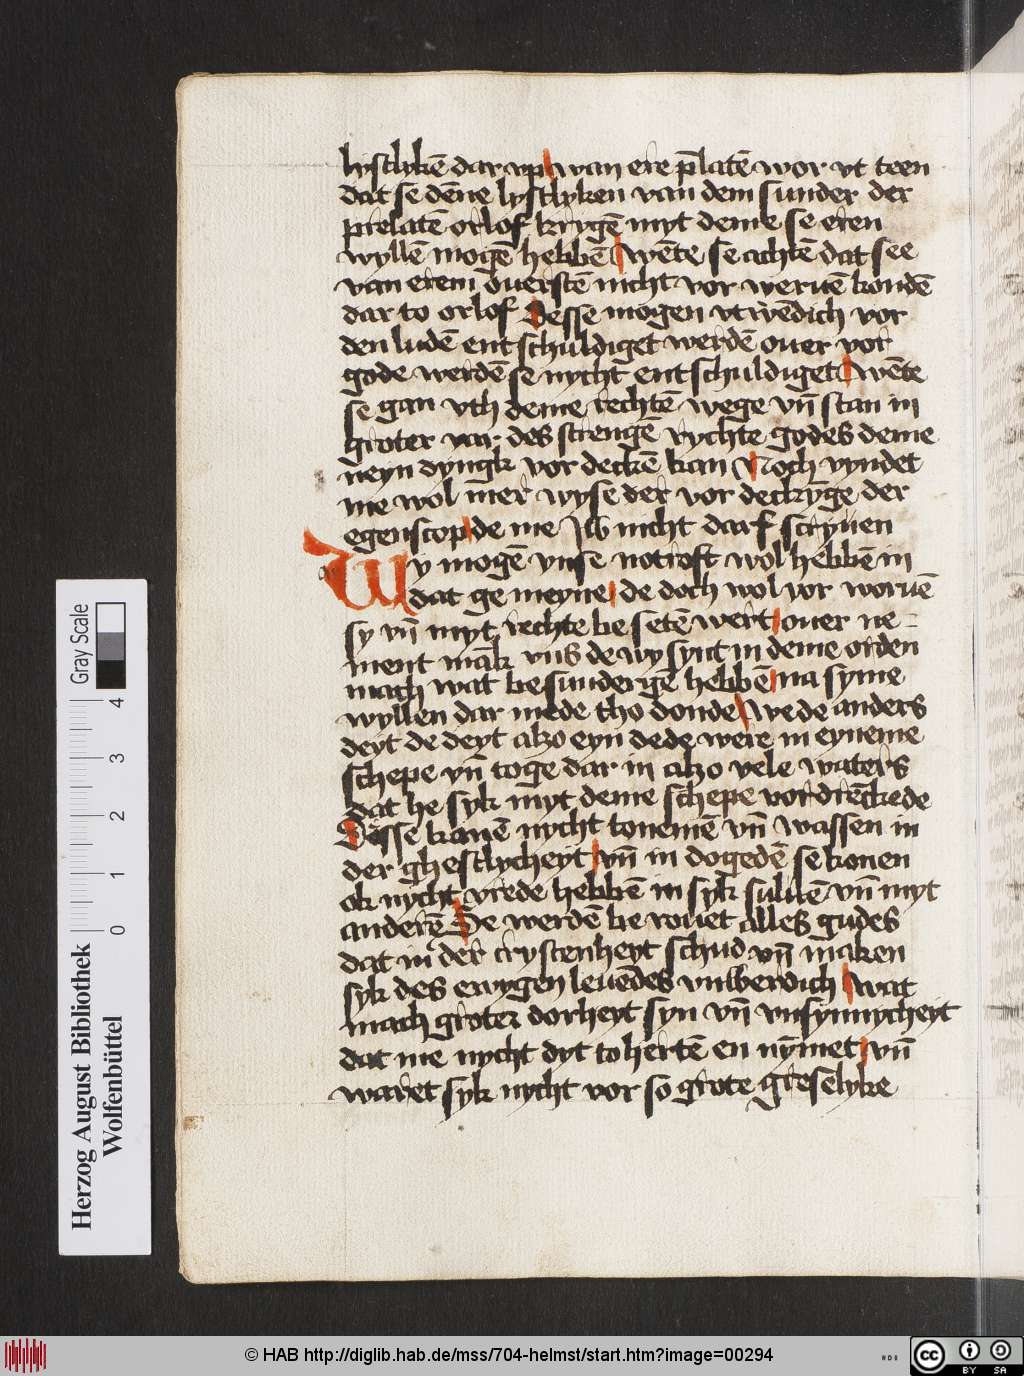 lystlykē dar vp wan ere p̄latē wor vt teen
dat se dēne lystlyken van dem sunder der
prelatē orlof krygē myt deme se eren
wyllē mogē hebbē wēte se achtē dat see
van erem ouerstē nicht vor weruē kondē
dar to orlof Desse mogen vtwēdich vor
den ludē ent schuldiget werdē ouer vor
gode werdē se nycht ent schuldiget wēte
se gan vth deme rechtē wege vn̄ stan in
groter var des strengē rychte godes deme
neyn dyngk vor deckē kan Noch vyndet
me wol mer wyse der vor deckȳge der
egenscop de me nicht darf scryuen
Wy mogē vnse notroft wol hebbē in
dat ge meyne de doch wol vor woruē
sy vn̄ myt rechte be setē wert ouer ne=
ment māk vns de wy synt in deme orden
mach wat be sundergē hebbē na syme
wyllen dar mede tho donde We de anders
deyt de deyt alzo eyn dede were in eyneme
schepe vn̄ togē dar in alzo vele waters
dat he syk myt deme schepe vordrēckede
Desse konē nycht tonemē vn̄ wassen in
der ghestlycheyt vn̄ in dogedē se konen
ok nycht vrede hebbē in syk suluē vn̄ myt
anderē De werdē be rouet alles gudes
dat in der crystenheyt schud vn̄ maken
syk des ewygen leuēdes vnwerdich wat
mach groter dorheyt syn vn̄ vnsynnycheyt
dat me nycht dyt to hertē en nȳmet vn̄
waret syk nycht vor so grote greselyke
Herzog August Bibliothek
Wolfenbüttel
0 1 2 3 4
Gray Scale
© HAB http://diglib.hab.de/mss/704-helmst/start.htm?image=00294
HAB
cc BY SA